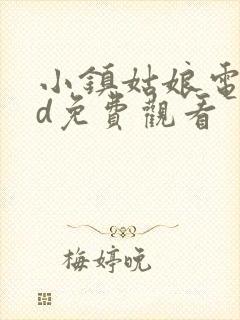 小鎮姑娘電
d免費觀看
梅婷晚